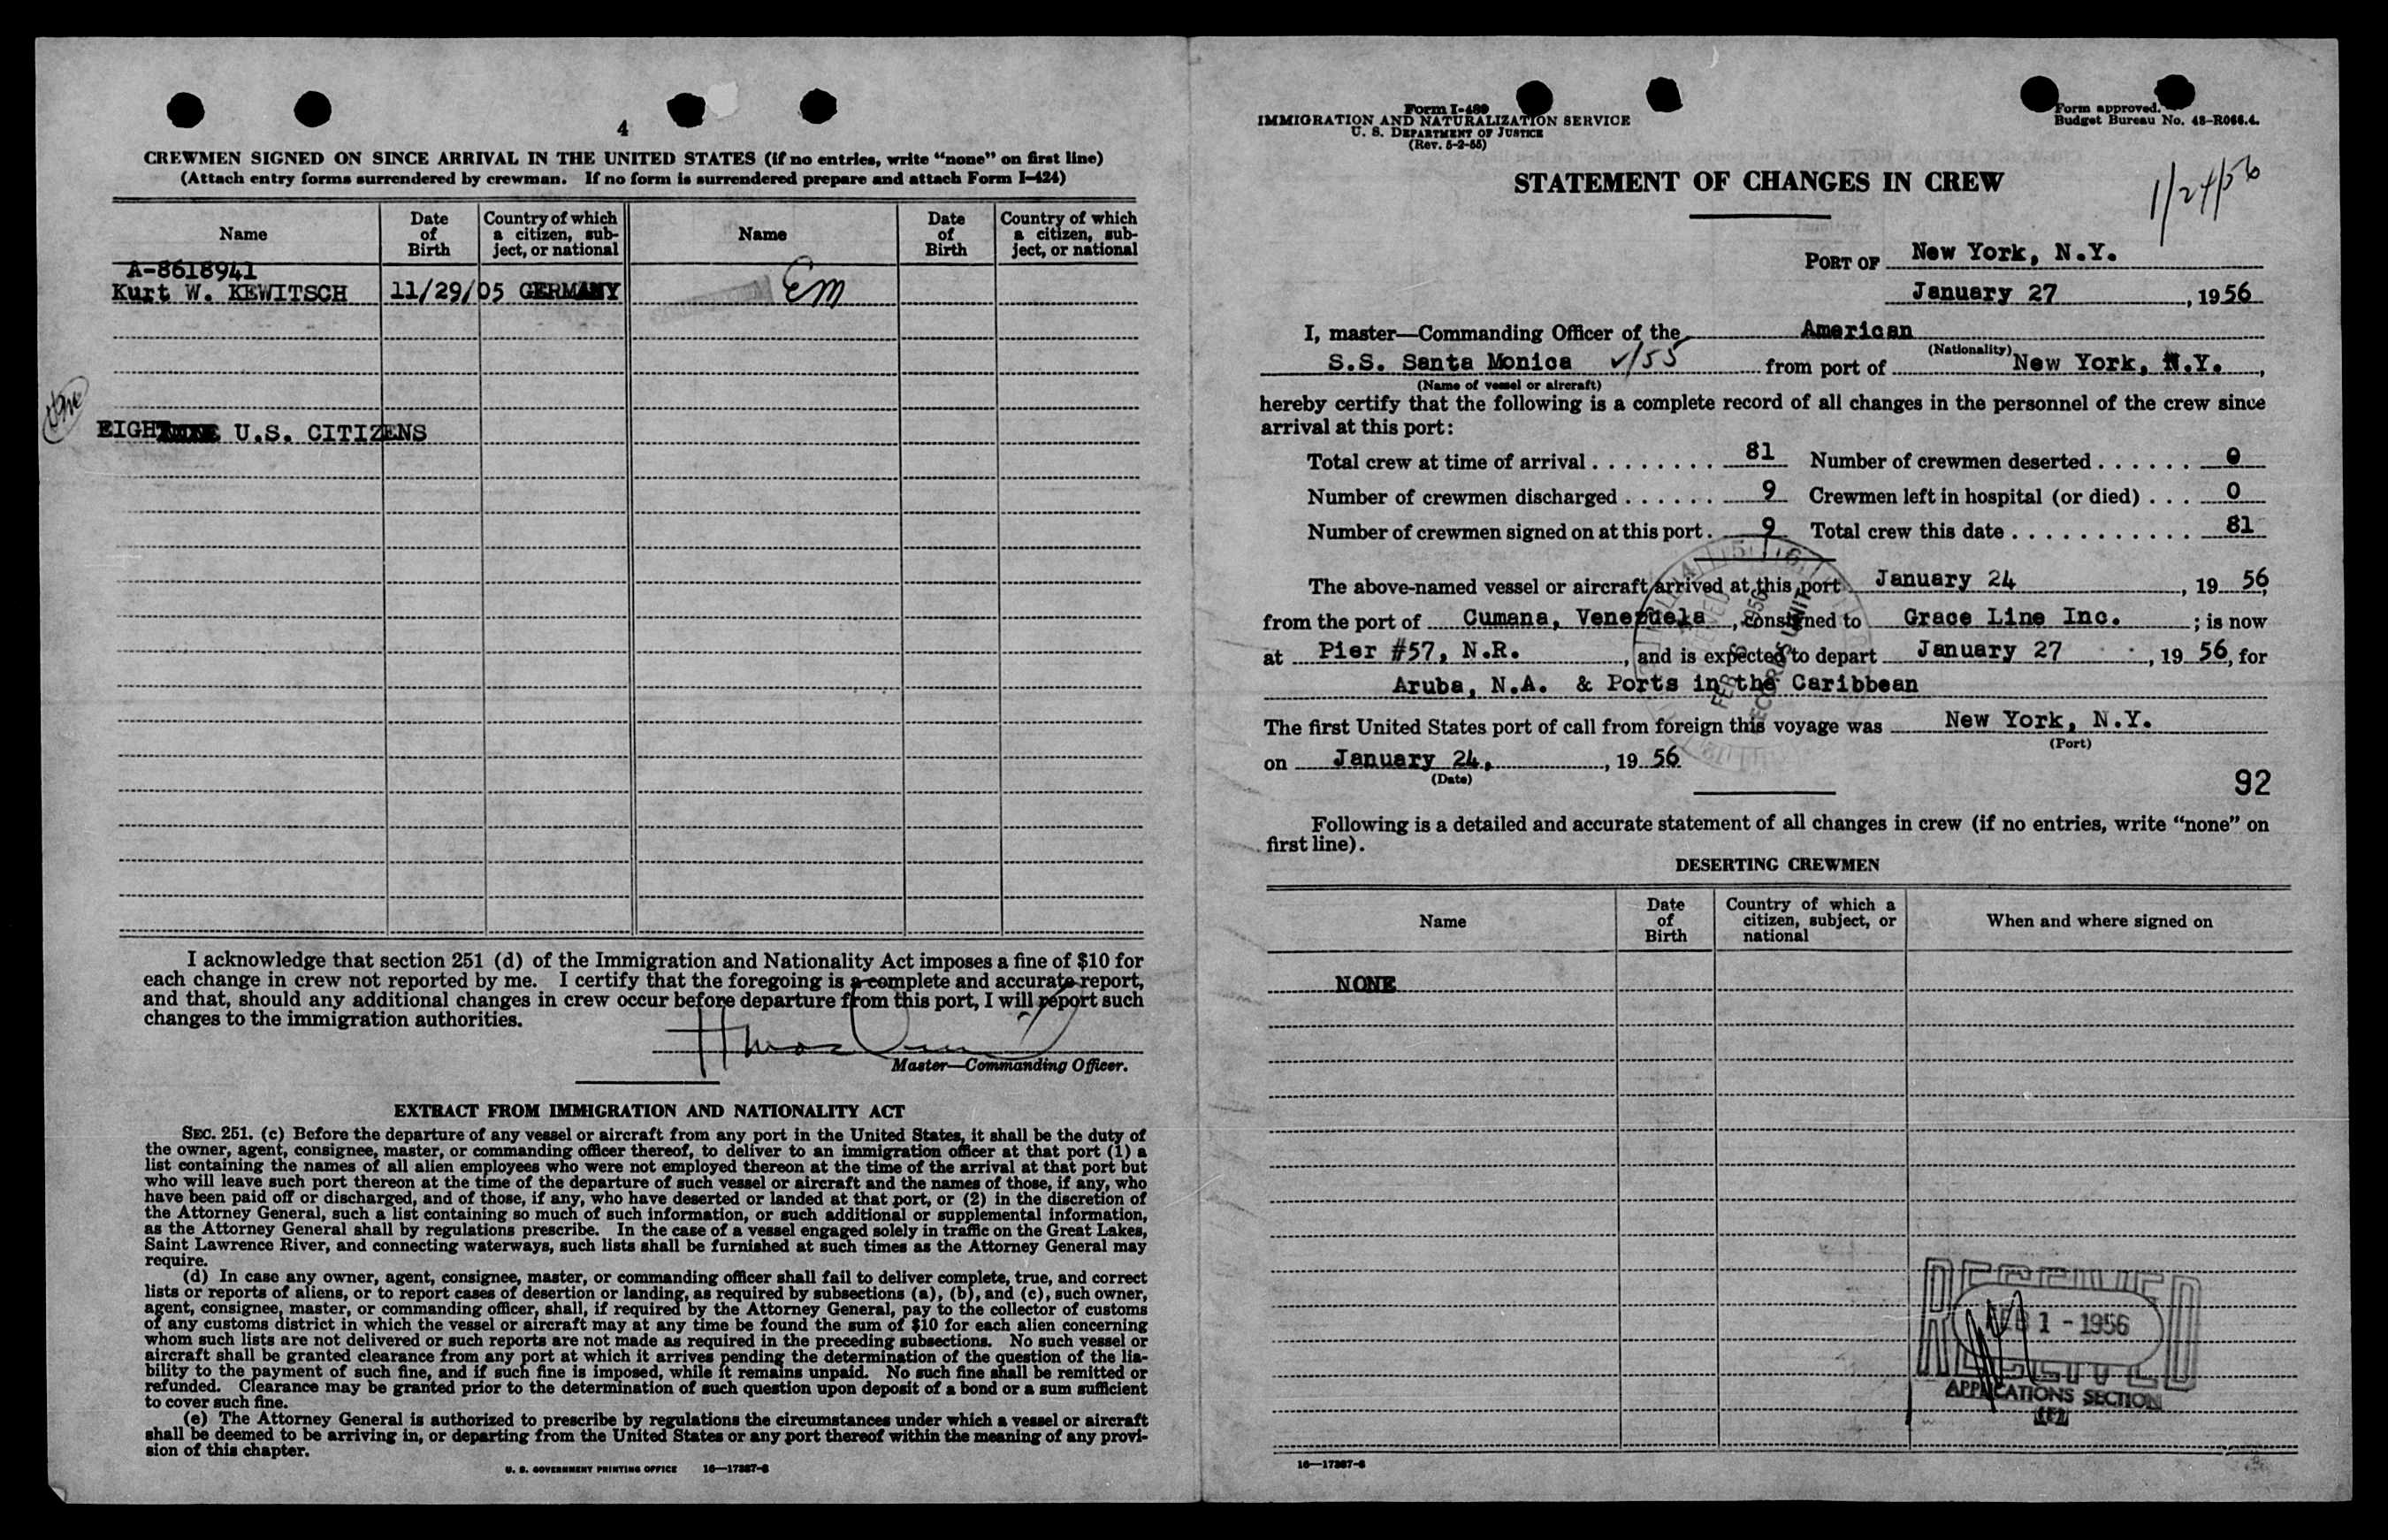 4
CREWMEN SIGNED ON SINCE ARRIVAL IN THE UNITED STATES (if no entries, write “none” on first line)
(Attach entry forms surrendered by crewman. If no form is surrendered prepare and attach Form I-424)
Name Date of Birth Country of which a citizen, subject, or national Name Date of Birth Country of which a citizen, subject, or national
A-8618941
Kurt W. KEWITSCH 11/29/05 GERMANY Em
EIGHT U.S. CITIZENS
I acknowledge that section 251 (d) of the Immigration and Nationality Act imposes a fine of $10 for
each change in crew not reported by me. I certify that the foregoing is a complete and accurate report,
and that, should any additional changes in crew occur before departure from this port, I will report such
changes to the immigration authorities.
Master—Commanding Officer.
EXTRACT FROM IMMIGRATION AND NATIONALITY ACT
SEC. 251. (c) Before the departure of any vessel or aircraft from any port in the United States, it shall be the duty of
the owner, agent, consignee, master, or commanding officer thereof, to deliver to an immigration officer at that port (1) a
list containing the names of all alien employees who were not employed thereon at the time of the arrival at that port but
who will leave such port thereon at the time of the departure of such vessel or aircraft and the names of those, if any, who
have been paid off or discharged, and of those, if any, who have deserted or landed at that port, or (2) in the discretion of
the Attorney General, such a list containing so much of such information, or such additional or supplemental information,
as the Attorney General shall by regulations prescribe. In the case of a vessel engaged solely in traffic on the Great Lakes,
Saint Lawrence River, and connecting waterways, such lists shall be furnished at such times as the Attorney General may
require.
(d) In case any owner, agent, consignee, master, or commanding officer shall fail to deliver complete, true, and correct
lists or reports of aliens, or to report cases of desertion or landing, as required by subsections (a), (b), and (c), such owner,
agent, consignee, master, or commanding officer, shall, if required by the Attorney General, pay to the collector of customs
of any customs district in which the vessel or aircraft may at any time be found the sum of $10 for each alien concerning
whom such lists are not delivered or such reports are not made as required in the preceding subsections. No such vessel or
aircraft shall be granted clearance from any port at which it arrives pending the determination of the question of the lia-
bility to the payment of such fine, and if such fine is imposed, while it remains unpaid. No such fine shall be remitted or
refunded. Clearance may be granted prior to the determination of such question upon deposit of a bond or a sum sufficient
to cover such fine.
(e) The Attorney General is authorized to prescribe by regulations the circumstances under which a vessel or aircraft
shall be deemed to be arriving in, or departing from the United States or any port thereof within the meaning of any provi-
sion of this chapter.
U. S. GOVERNMENT PRINTING OFFICE 16—17387-6
Form I-489
IMMIGRATION AND NATURALIZATION SERVICE
U. S. DEPARTMENT OF JUSTICE
(Rev. 5-2-55)
Form approved.
Budget Bureau No. 43-R066.4.
STATEMENT OF CHANGES IN CREW
1/24/56
PORT OF New York, N.Y.
January 27, 1956
I, master—Commanding Officer of the American
(Nationality)
S.S. Santa Monica ✓/55 from port of New York, N.Y.,
(Name of vessel or aircraft)
hereby certify that the following is a complete record of all changes in the personnel of the crew since
arrival at this port:
Total crew at time of arrival ........ 81 Number of crewmen deserted ...... 0
Number of crewmen discharged ...... 9 Crewmen left in hospital (or died) ... 0
Number of crewmen signed on at this port. 9 Total crew this date ........... 81
The above-named vessel or aircraft arrived at this port January 24, 1956
from the port of Cumana, Venezuela, consigned to Grace Line Inc.; is now
at Pier #57, N.R., and is expected to depart January 27, 1956, for
Aruba, N.A. & Ports in the Caribbean
The first United States port of call from foreign this voyage was New York, N.Y.
(Port)
on January 24, , 1956
(Date)
92
Following is a detailed and accurate statement of all changes in crew (if no entries, write “none” on
first line).
DESERTING CREWMEN
Name Date of Birth Country of which a citizen, subject, or national When and where signed on
NONE
RECEIVED
FEB 1 - 1956
APPLICATIONS SECTION
16—17387-6